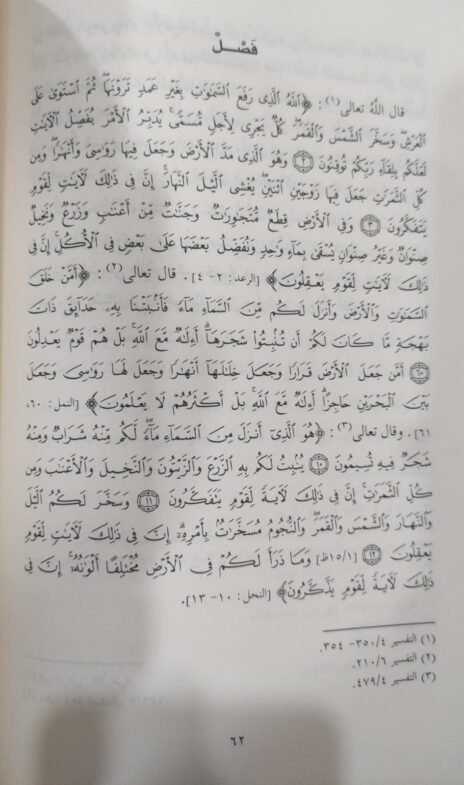 فَصْلٌ
قال اللَّه تعالى(١): ﴿ٱللَّهُ ٱلَّذِى رَفَعَ ٱلسَّمَٰوَٰتِ بِغَيْرِ عَمَدٍ تَرَوْنَهَا ۖ ثُمَّ ٱسْتَوَىٰ عَلَى
ٱلْعَرْشِ ۖ وَسَخَّرَ ٱلشَّمْسَ وَٱلْقَمَرَ ۖ كُلٌّ يَجْرِى لِأَجَلٍ مُّسَمًّى ۚ يُدَبِّرُ ٱلْأَمْرَ يُفَصِّلُ ٱلْءَايَٰتِ
لَعَلَّكُم بِلِقَآءِ رَبِّكُمْ تُوقِنُونَ ۝٢ وَهُوَ ٱلَّذِى مَدَّ ٱلْأَرْضَ وَجَعَلَ فِيهَا رَوَٰسِىَ وَأَنْهَٰرًا ۖ وَمِن
كُلِّ ٱلثَّمَرَٰتِ جَعَلَ فِيهَا زَوْجَيْنِ ٱثْنَيْنِ ۖ يُغْشِى ٱلَّيْلَ ٱلنَّهَارَ ۚ إِنَّ فِى ذَٰلِكَ لَءَايَٰتٍ لِّقَوْمٍ
يَتَفَكَّرُونَ ۝٣ وَفِى ٱلْأَرْضِ قِطَعٌ مُّتَجَٰوِرَٰتٌ وَجَنَّٰتٌ مِّنْ أَعْنَٰبٍ وَزَرْعٌ وَنَخِيلٌ
صِنْوَانٌ وَغَيْرُ صِنْوَانٍ يُسْقَىٰ بِمَآءٍ وَٰحِدٍ وَنُفَضِّلُ بَعْضَهَا عَلَىٰ بَعْضٍ فِى ٱلْأُكُلِ ۚ إِنَّ فِى
ذَٰلِكَ لَءَايَٰتٍ لِّقَوْمٍ يَعْقِلُونَ﴾ [الرعد: ٢ - ٤]. قال تعالى(٢): ﴿أَمَّنْ خَلَقَ
ٱلسَّمَٰوَٰتِ وَٱلْأَرْضَ وَأَنزَلَ لَكُم مِّنَ ٱلسَّمَآءِ مَآءً فَأَنۢبَتْنَا بِهِۦ حَدَآئِقَ ذَاتَ
بَهْجَةٍ مَّا كَانَ لَكُمْ أَن تُنۢبِتُوا۟ شَجَرَهَآ ۗ أَءِلَٰهٌ مَّعَ ٱللَّهِ ۚ بَلْ هُمْ قَوْمٌ يَعْدِلُونَ
۝٦٠ أَمَّن جَعَلَ ٱلْأَرْضَ قَرَارًا وَجَعَلَ خِلَٰلَهَآ أَنْهَٰرًا وَجَعَلَ لَهَا رَوَٰسِىَ وَجَعَلَ
بَيْنَ ٱلْبَحْرَيْنِ حَاجِزًا ۗ أَءِلَٰهٌ مَّعَ ٱللَّهِ ۚ بَلْ أَكْثَرُهُمْ لَا يَعْلَمُونَ﴾ [النمل: ٦٠،
٦١]. وقال تعالى(٣): ﴿هُوَ ٱلَّذِىٓ أَنزَلَ مِنَ ٱلسَّمَآءِ مَآءً ۖ لَّكُم مِّنْهُ شَرَابٌ وَمِنْهُ
شَجَرٌ فِيهِ تُسِيمُونَ ۝١٠ يُنۢبِتُ لَكُم بِهِ ٱلزَّرْعَ وَٱلزَّيْتُونَ وَٱلنَّخِيلَ وَٱلْأَعْنَٰبَ وَمِن
كُلِّ ٱلثَّمَرَٰتِ ۗ إِنَّ فِى ذَٰلِكَ لَءَايَةً لِّقَوْمٍ يَتَفَكَّرُونَ ۝١١ وَسَخَّرَ لَكُمُ ٱلَّيْلَ
وَٱلنَّهَارَ وَٱلشَّمْسَ وَٱلْقَمَرَ ۖ وَٱلنُّجُومُ مُسَخَّرَٰتٌۢ بِأَمْرِهِۦٓ ۗ إِنَّ فِى ذَٰلِكَ لَءَايَٰتٍ لِّقَوْمٍ
يَعْقِلُونَ ۝١٢ [١/١٥ظ] وَمَا ذَرَأَ لَكُمْ فِى ٱلْأَرْضِ مُخْتَلِفًا أَلْوَٰنُهُۥٓ ۗ إِنَّ فِى
ذَٰلِكَ لَءَايَةً لِّقَوْمٍ يَذَّكَّرُونَ﴾ [النحل: ١٠ - ١٣].
(١) التفسير ٤/ ٣٥٠ - ٣٥٤.
(٢) التفسير ٦/ ٢١٠.
(٣) التفسير ٤/ ٤٧٩.
٦٢